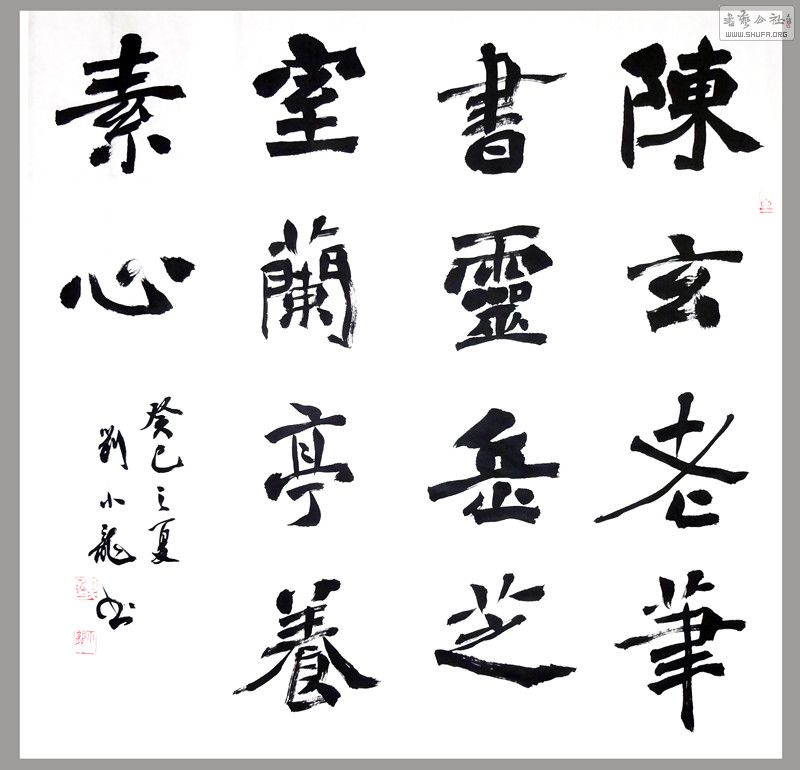 陳玄老筆
書靈岳芝
室蘭亭養
素心
癸巳之夏
劉小龍书
書藝公社
WWW.SHUFA.ORG